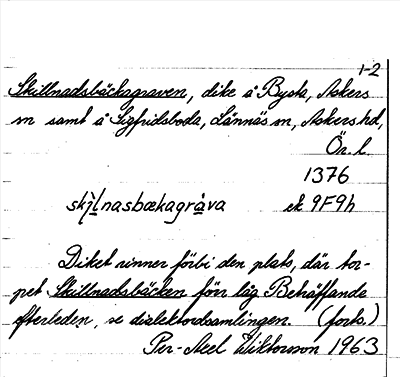 1-2
Skillnadsbäckagraven, dike å Bysta, Askers
sn samt å Sigfridsboda, Lännäs sn, Askers hd,
Ör. l.
1376
skįlnasbækagråva ek 9F9h
Diket rinner förbi den plats, där tor-
pet Skillnadsbäcken förr låg. Beträffande
efterleden, se dialektordsamlingen. (forts.)
Per-Axel Wiktorsson 1963